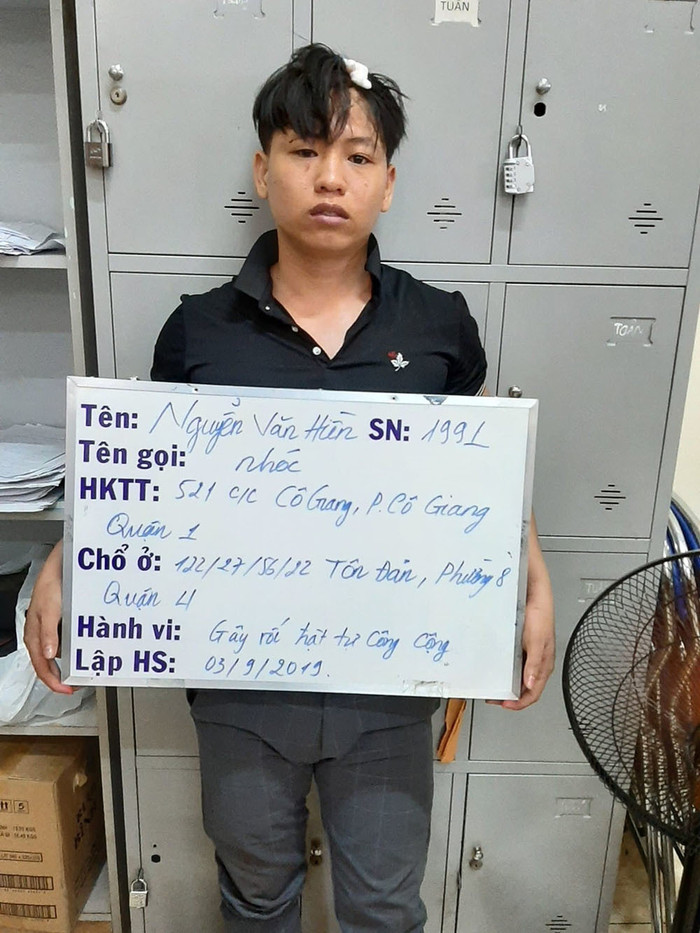 TUẤN
Toàn
Tên: Nguyễn Văn Hiền SN: 1991
Tên gọi: nhóc
HKTT: 521 c/c Cô Giang, P. Cô Giang
Quận 1
Chổ ở: 122/27/56/22 Tôn Đản, Phường 8
Quận 4
Hành vi: Gây rối trật tự Công Cộng
Lập HS: 03/9/2019.